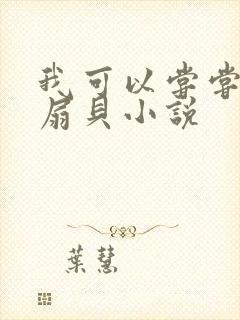 我可以尝尝
扇貝小說
葉慧